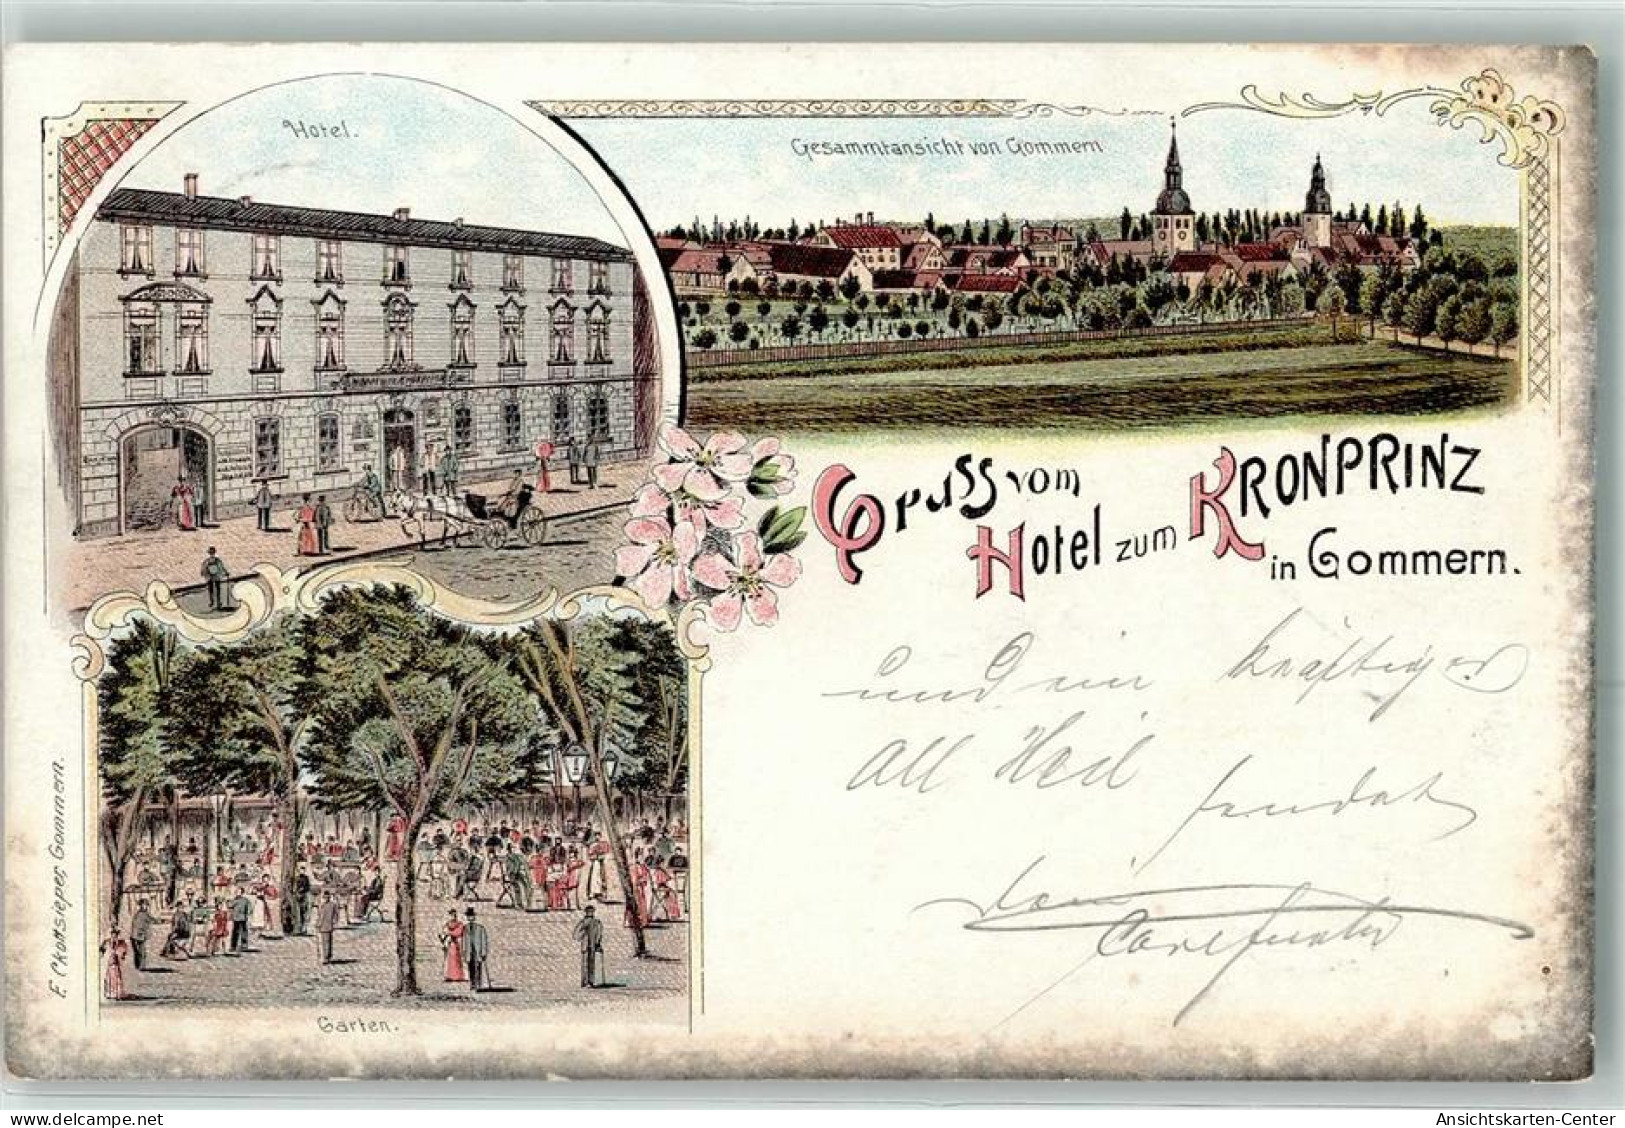 Hotel.
Gesammtansicht von Gommern
Gruss vom
Hotel zum KRONPRINZ
in Gommern.
und ein kräftiges
All Heil
sendet
Garten.
Ansichtskarten-Center